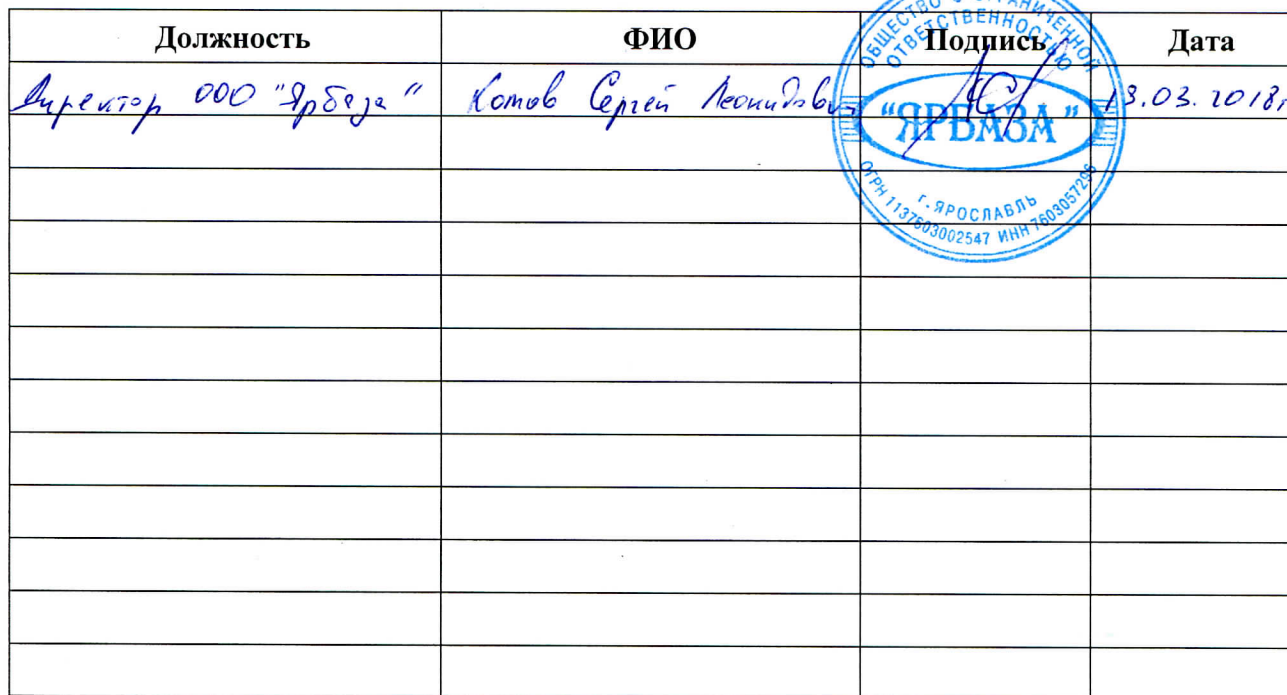 Должность ФИО Подпись Дата
Директор ООО "Ярбаза" Котов Сергей Леонидович 13.03.2018г
ОБЩЕСТВО С ОГРАНИЧЕННОЙ
ОТВЕТСТВЕННОСТЬЮ
"ЯРБАЗА"
г. ЯРОСЛАВЛЬ
ОГРН 1137603002547 ИНН 7603057296